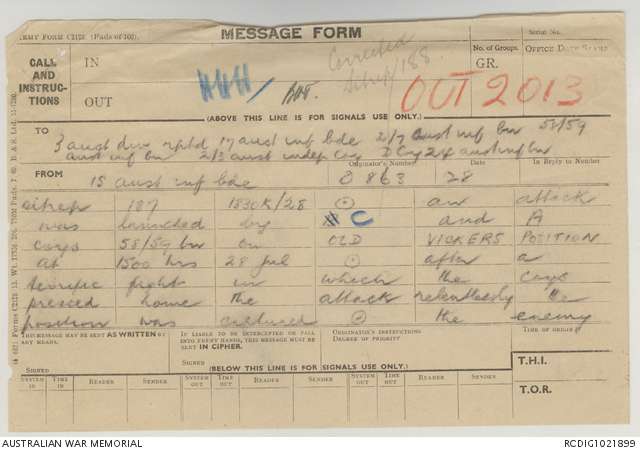 ARMY FORM C2128 (Pads of 100).
MESSAGE FORM
Serial No.
CALL AND INSTRUCTIONS
IN
OUT
No. of Groups.
GR.
OFFICE DATE STAMP
Corrected
Sitrep/188
OUT 2013
(ABOVE THIS LINE IS FOR SIGNALS USE ONLY.)
TO
3 aust div rptd 17 aust inf bde 2/7 aust inf bn 58/59
aust inf bn 2/3 aust indep coy D Coy 24 aust inf bn
Originator's Number
Date
In Reply to Number
FROM
15 aust inf bde
O 863
28
sitrep 187 1830K/28 ⊙ an attack
was launched by C and A
coys 58/59 bn on OLD VICKERS POSITION
at 1500 hrs 28 jul ⊙ after a
terrific fight in which the coys
pressed home the attack relentlessly the
position was captured ⊙ the enemy
THIS MESSAGE MAY BE SENT AS WRITTEN BY ANY MEANS.
IF LIABLE TO BE INTERCEPTED OR FALL INTO ENEMY HANDS, THIS MESSAGE MUST BE SENT IN CIPHER.
ORIGINATOR'S INSTRUCTIONS
DEGREE OF PRIORITY
TIME OF ORIGIN
SIGNED
SIGNED
(BELOW THIS LINE IS FOR SIGNALS USE ONLY.)
T.H.I.
SYSTEM IN
TIME IN
READER
SENDER
SYSTEM OUT
TIME OUT
READER
SENDER
SYSTEM OUT
TIME OUT
READER
SENDER
T.O.R.
AUSTRALIAN WAR MEMORIAL
RCDIG1021899